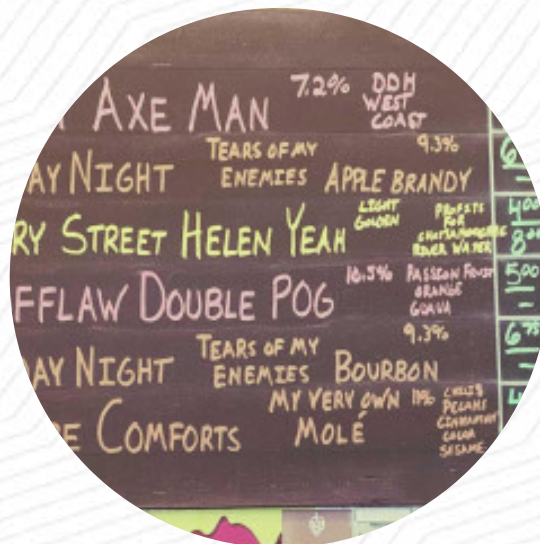 AXE MAN 7.2% DDH
WEST
COAST
AY NIGHT TEARS OF MY 9.3%
ENEMIES APPLE BRANDY
RY STREET HELEN YEAH LIGHT
GOLDEN
PROFITS
FOR
RIVER WATER
4.00
8.00
FFLAW DOUBLE POG 10.5% PASSION FRUIT
ORANGE
GUAVA
5.00
-
AY NIGHT TEARS OF MY 9.3%
ENEMIES BOURBON
6.75
-
E COMFORTS MY VERY OWN 11%
MOLÉ
CHILIS
PECANS
CINNAMON
CACAO
SESAME